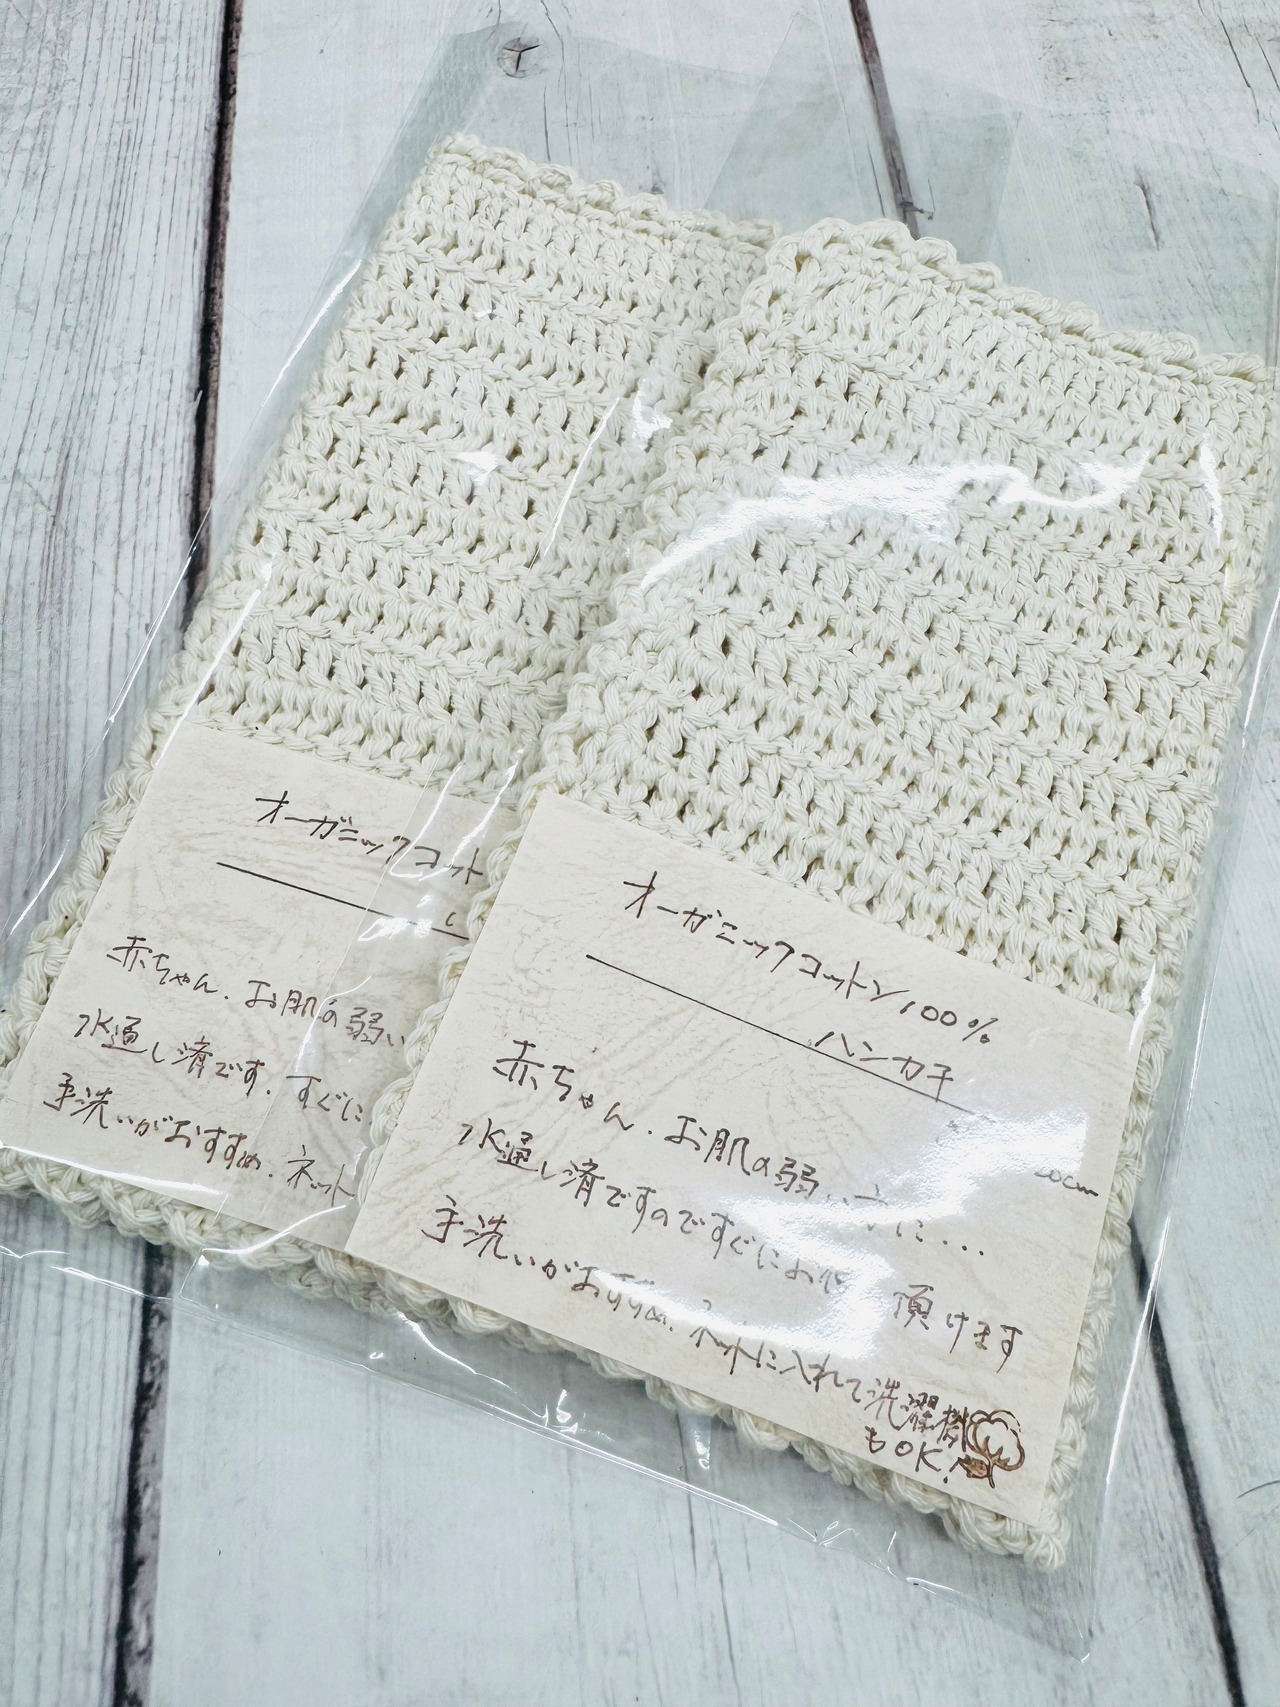 オーガニックコット
赤ちゃん、お肌の弱い
水通し済です。すぐに
手洗いがおすすめ。ネット
オーガニックコットン100%
ハンカチ
20cm
赤ちゃん、お肌の弱い方に...
水通し済ですのですぐにお 頂けます
手洗いがおすすめ。ネットに入れて洗濯機
もOK!